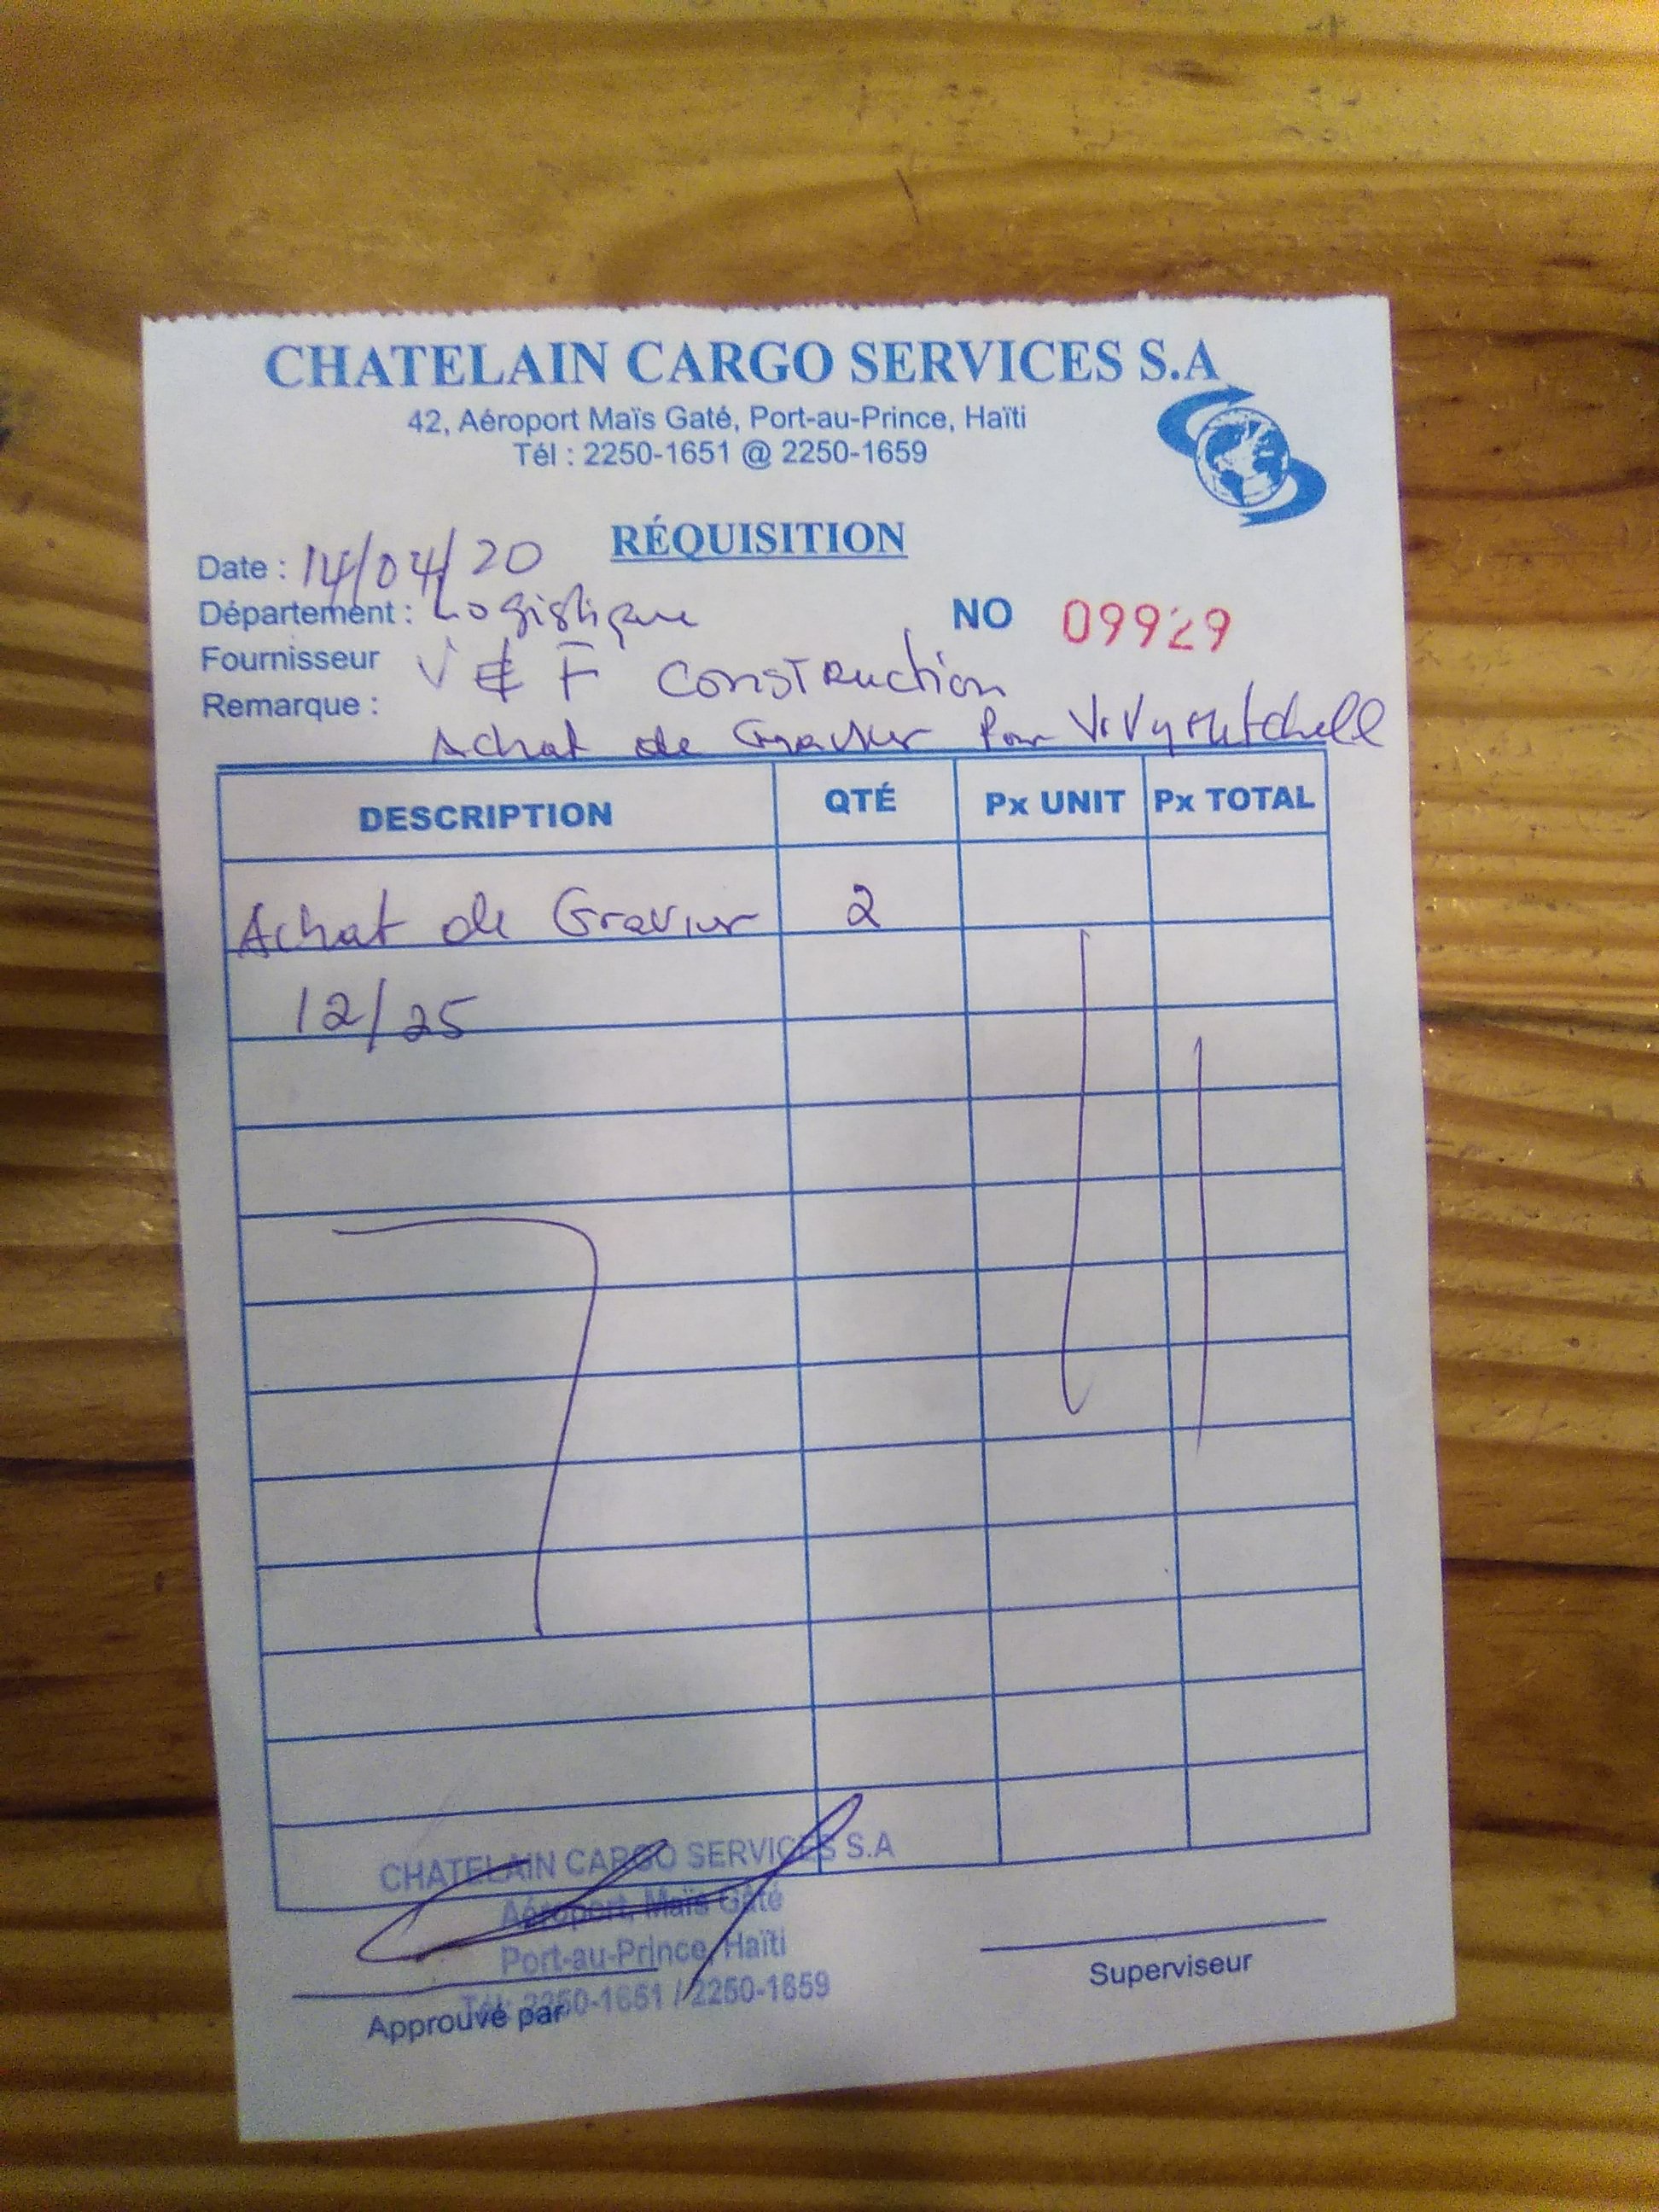 CHATELAIN CARGO SERVICES S.A
42, Aéroport Maïs Gaté, Port-au-Prince, Haïti
Tél : 2250-1651 @ 2250-1659
RÉQUISITION
Date : 14/04/20
Département : Logistique
NO 09929
Fournisseur V & F Construction
Remarque : Achat de Gravier Pour Vivy Mitchell
DESCRIPTION QTÉ Px UNIT Px TOTAL
Achat de Gravier 2
12/25
CHATELAIN CARGO SERVICES S.A
Aéroport, Maïs Gaté
Port-au-Prince, Haïti
Tél: 2250-1651 / 2250-1659
Approuvé par
Superviseur